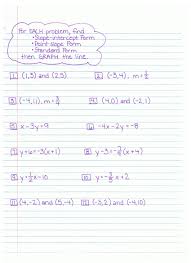 For EACH problem, find
• Slope-intercept Form
• Point Slope Form
• Standard Form
then GRAPH the line.
1 (1,3) and (2,5)
2 (-3,4), m=
3 (-4,11), m=
4 (4,0) and (-2,1)
5 x-3y=9
6 -4x-2y=-8
7 y+6=-3(x+1)
8 y-3=-(x+2)
9 y=x-10
10 y=-x+2
11 (4,-2) and (5,-4)
12 (-3,2) and (-4,10)